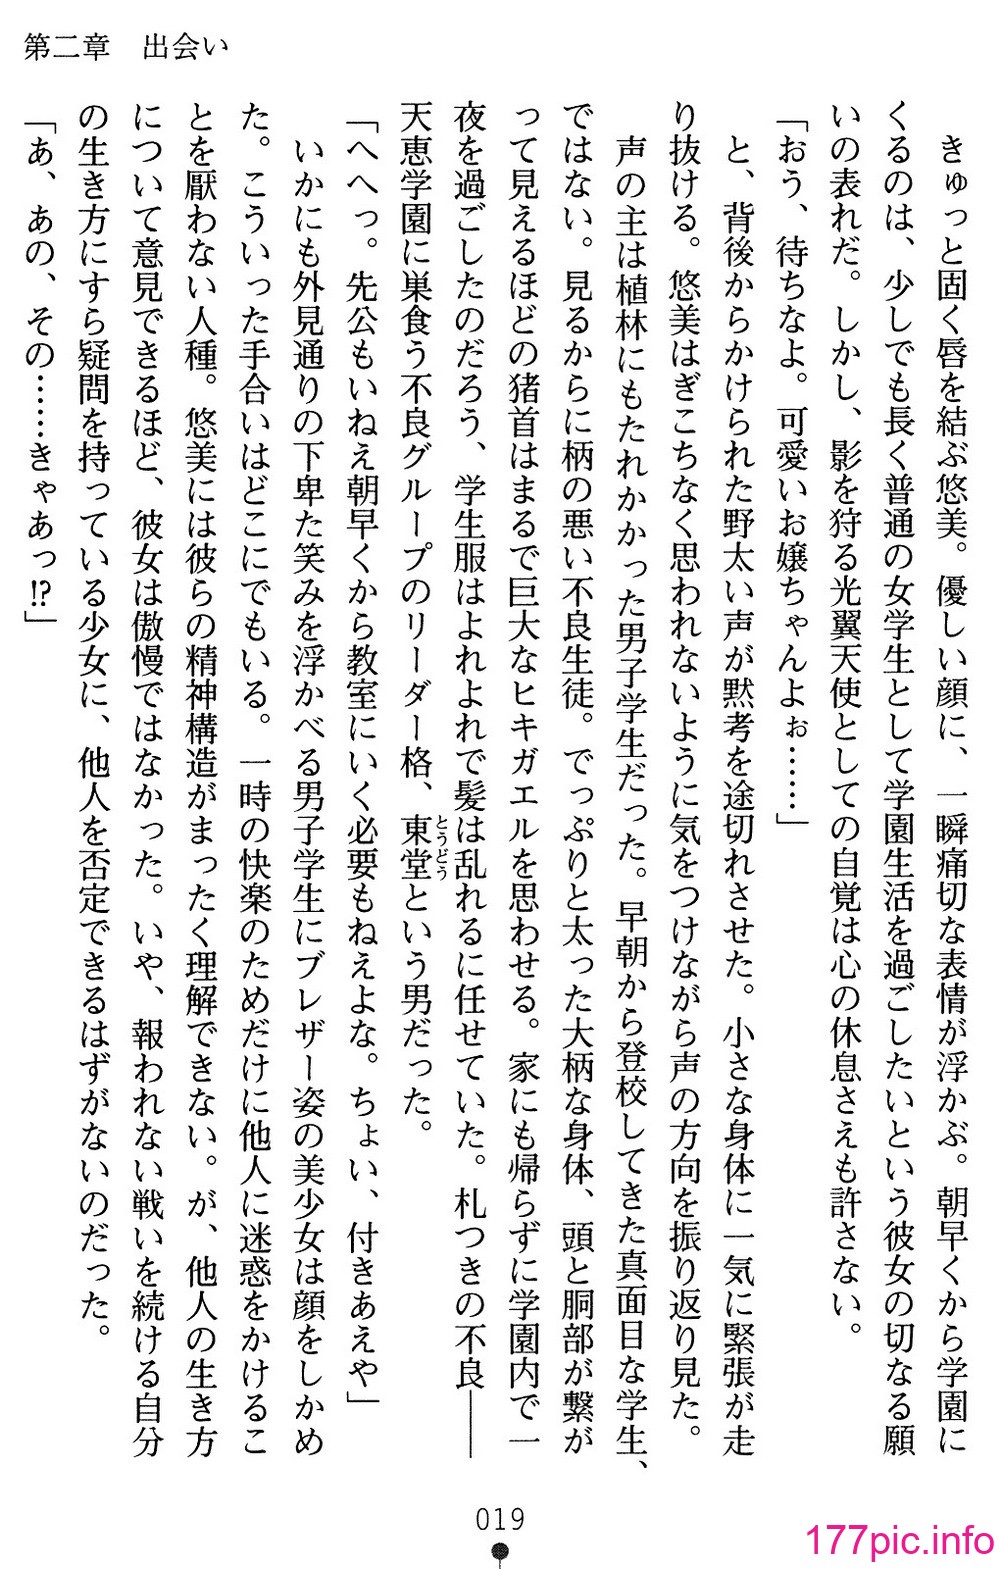 第二章　出会い
　きゅっと固く唇を結ぶ悠美。優しい顔に、一瞬痛切な表情が浮かぶ。朝早くから学園に
くるのは、少しでも長く普通の女学生として学園生活を過ごしたいという彼女の切なる願
いの表れだ。しかし、影を狩る光翼天使としての自覚は心の休息さえも許さない。
「おう、待ちなよ。可愛いお嬢ちゃんよぉ……」
　と、背後からかけられた野太い声が黙考を途切れさせた。小さな身体に一気に緊張が走
り抜ける。悠美はぎこちなく思われないように気をつけながら声の方向を振り返り見た。
　声の主は植林にもたれかかった男子学生だった。早朝から登校してきた真面目な学生、
ではない。見るからに柄の悪い不良生徒。でっぷりと太った大柄な身体、頭と胴部が繋が
って見えるほどの猪首はまるで巨大なヒキガエルを思わせる。家にも帰らずに学園内で一
夜を過ごしたのだろう、学生服はよれよれで髪は乱れるに任せていた。札つきの不良――
天恵学園に巣食う不良グループのリーダー格、東堂という男だった。
とうどう
「へへっ。先公もいねえ朝早くから教室にいく必要もねえよな。ちょい、付きあえや」
　いかにも外見通りの下卑た笑みを浮かべる男子学生にブレザー姿の美少女は顔をしかめ
た。こういった手合いはどこにでもいる。一時の快楽のためだけに他人に迷惑をかけるこ
とを厭わない人種。悠美には彼らの精神構造がまったく理解できない。が、他人の生き方
について意見できるほど、彼女は傲慢ではなかった。いや、報われない戦いを続ける自分
の生き方にすら疑問を持っている少女に、他人を否定できるはずがないのだった。
「あ、あの、その……きゃあっ!?」
019
177pic.info